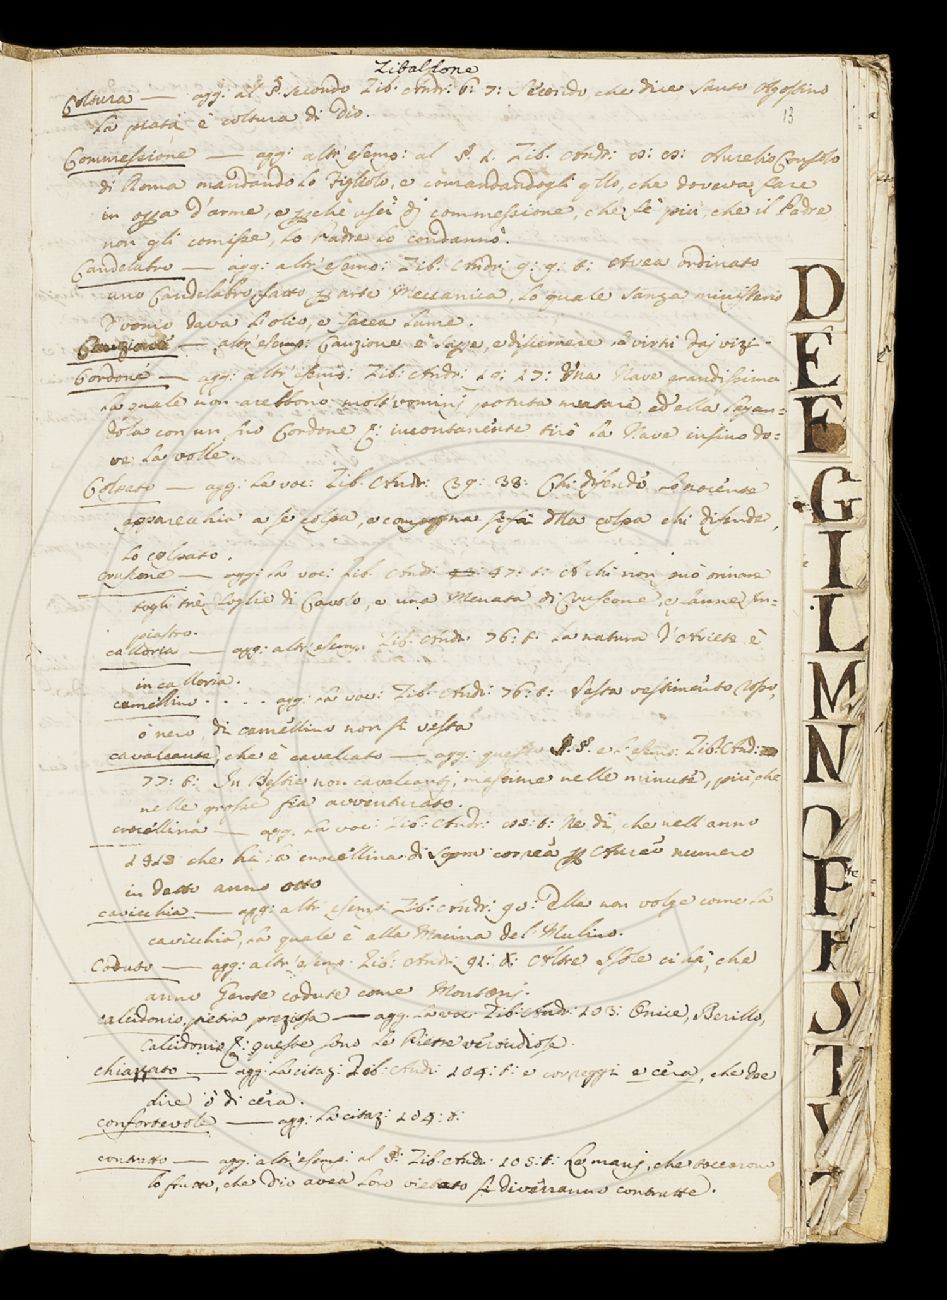 Zibaldone
13
Coltura — agg: al §. secondo Zib: Andr: 6: 7: Secondo, che dice Santo Agostino
la pietà è coltura di Dio.
Commessione — agg: altr'esemp: al §. 1. Zib: Andr: 8: 8: Aurelio Consolo
di Roma mandando lo Figliolo, e comandandogli qllo, che doveva fare
in d'arme, e uscì di commessione, che fè più, che il Padre
non gli comisse, lo Padre lo condannò.
Candelabro — agg: altr'esemp: Zib: Andr: 9: 9: t: Avea ordinato
uno Candelabro fatto arte Meccanica, lo quale sanza ministerio
d'uomo dava l'olio, e facea lume.
Cauzione — altr'esemp: Cauzione è e discernere le virtù da' vizi.
Cordone — agg: altr'esemp: Zib: Andr: 10: 17: Una Nave grandissima
la quale non arebbono molti uomini potuta mutare, ed ella legan=
dola con un suo Cordone incontanente tirò la Nave infino do=
ve la volle.
Colpato — agg: la voc: Zib: Andr: 39: 38: Chi difende lo nocente
apparecchia a se colpa, e compagna si fa dlla colpa chi difende
lo colpato.
Cruscone — agg: la voc: Zib: Andr: 47: t: A chi non può orinare
togli trè foglie di Cavolo, e una Menata di Cruscone, e fanne In-
piastro.
calloria — agg: altr'esemp: Zib: Andr: 76: t: La natura d'Ariete è
in calloria.
camellino . . . . agg: la voc: Zib: Andr: 76: t: Vesta vestimento rosso,
ò nero, di camellino non si vesta
cavalcante, che è cavalcato — agg: questo §. e l'esemp: Zib: And:
77: t: In Bestie non cavalcanti, massime nelle minute, più, che
nelle grosse sia avventurato.
crocellina — agg: la voc: Zib: Andr: 88: t: Se dì, che nell'anno
1313 che hà la crocellina di sopra correa Aureo numero
in detto anno otto
cavicchia — agg: altr'esemp: Zib: Andr: 90: Ella non volge come la
cavicchia, la quale è alla Macina del Mulino.
Coduto — agg: altr'esemp: Zib: Andr: 91: t: Altre Isole ci hà, che
anno Gente codute come Montoni.
calcidonio, pietra preziosa — agg: la voc: Zib: Andr: 103: Onice, Berillo,
Calcidonio queste sono le Pietre
chiappato — agg: la citaz: Zib: Andr: 104: t: e correggi e cera, che dee
dire ò di cera.
confortevole — agg: la citaz: 104: t:
contratto — agg: altr'esemp: al §. Zib: Andr: 105: t: Le mani, che toccarono
lo frutto, che Dio avea loro vietato si diverranno contratte.
D
E
F
G
I
L
M
N
O
P
S
T
V
Z